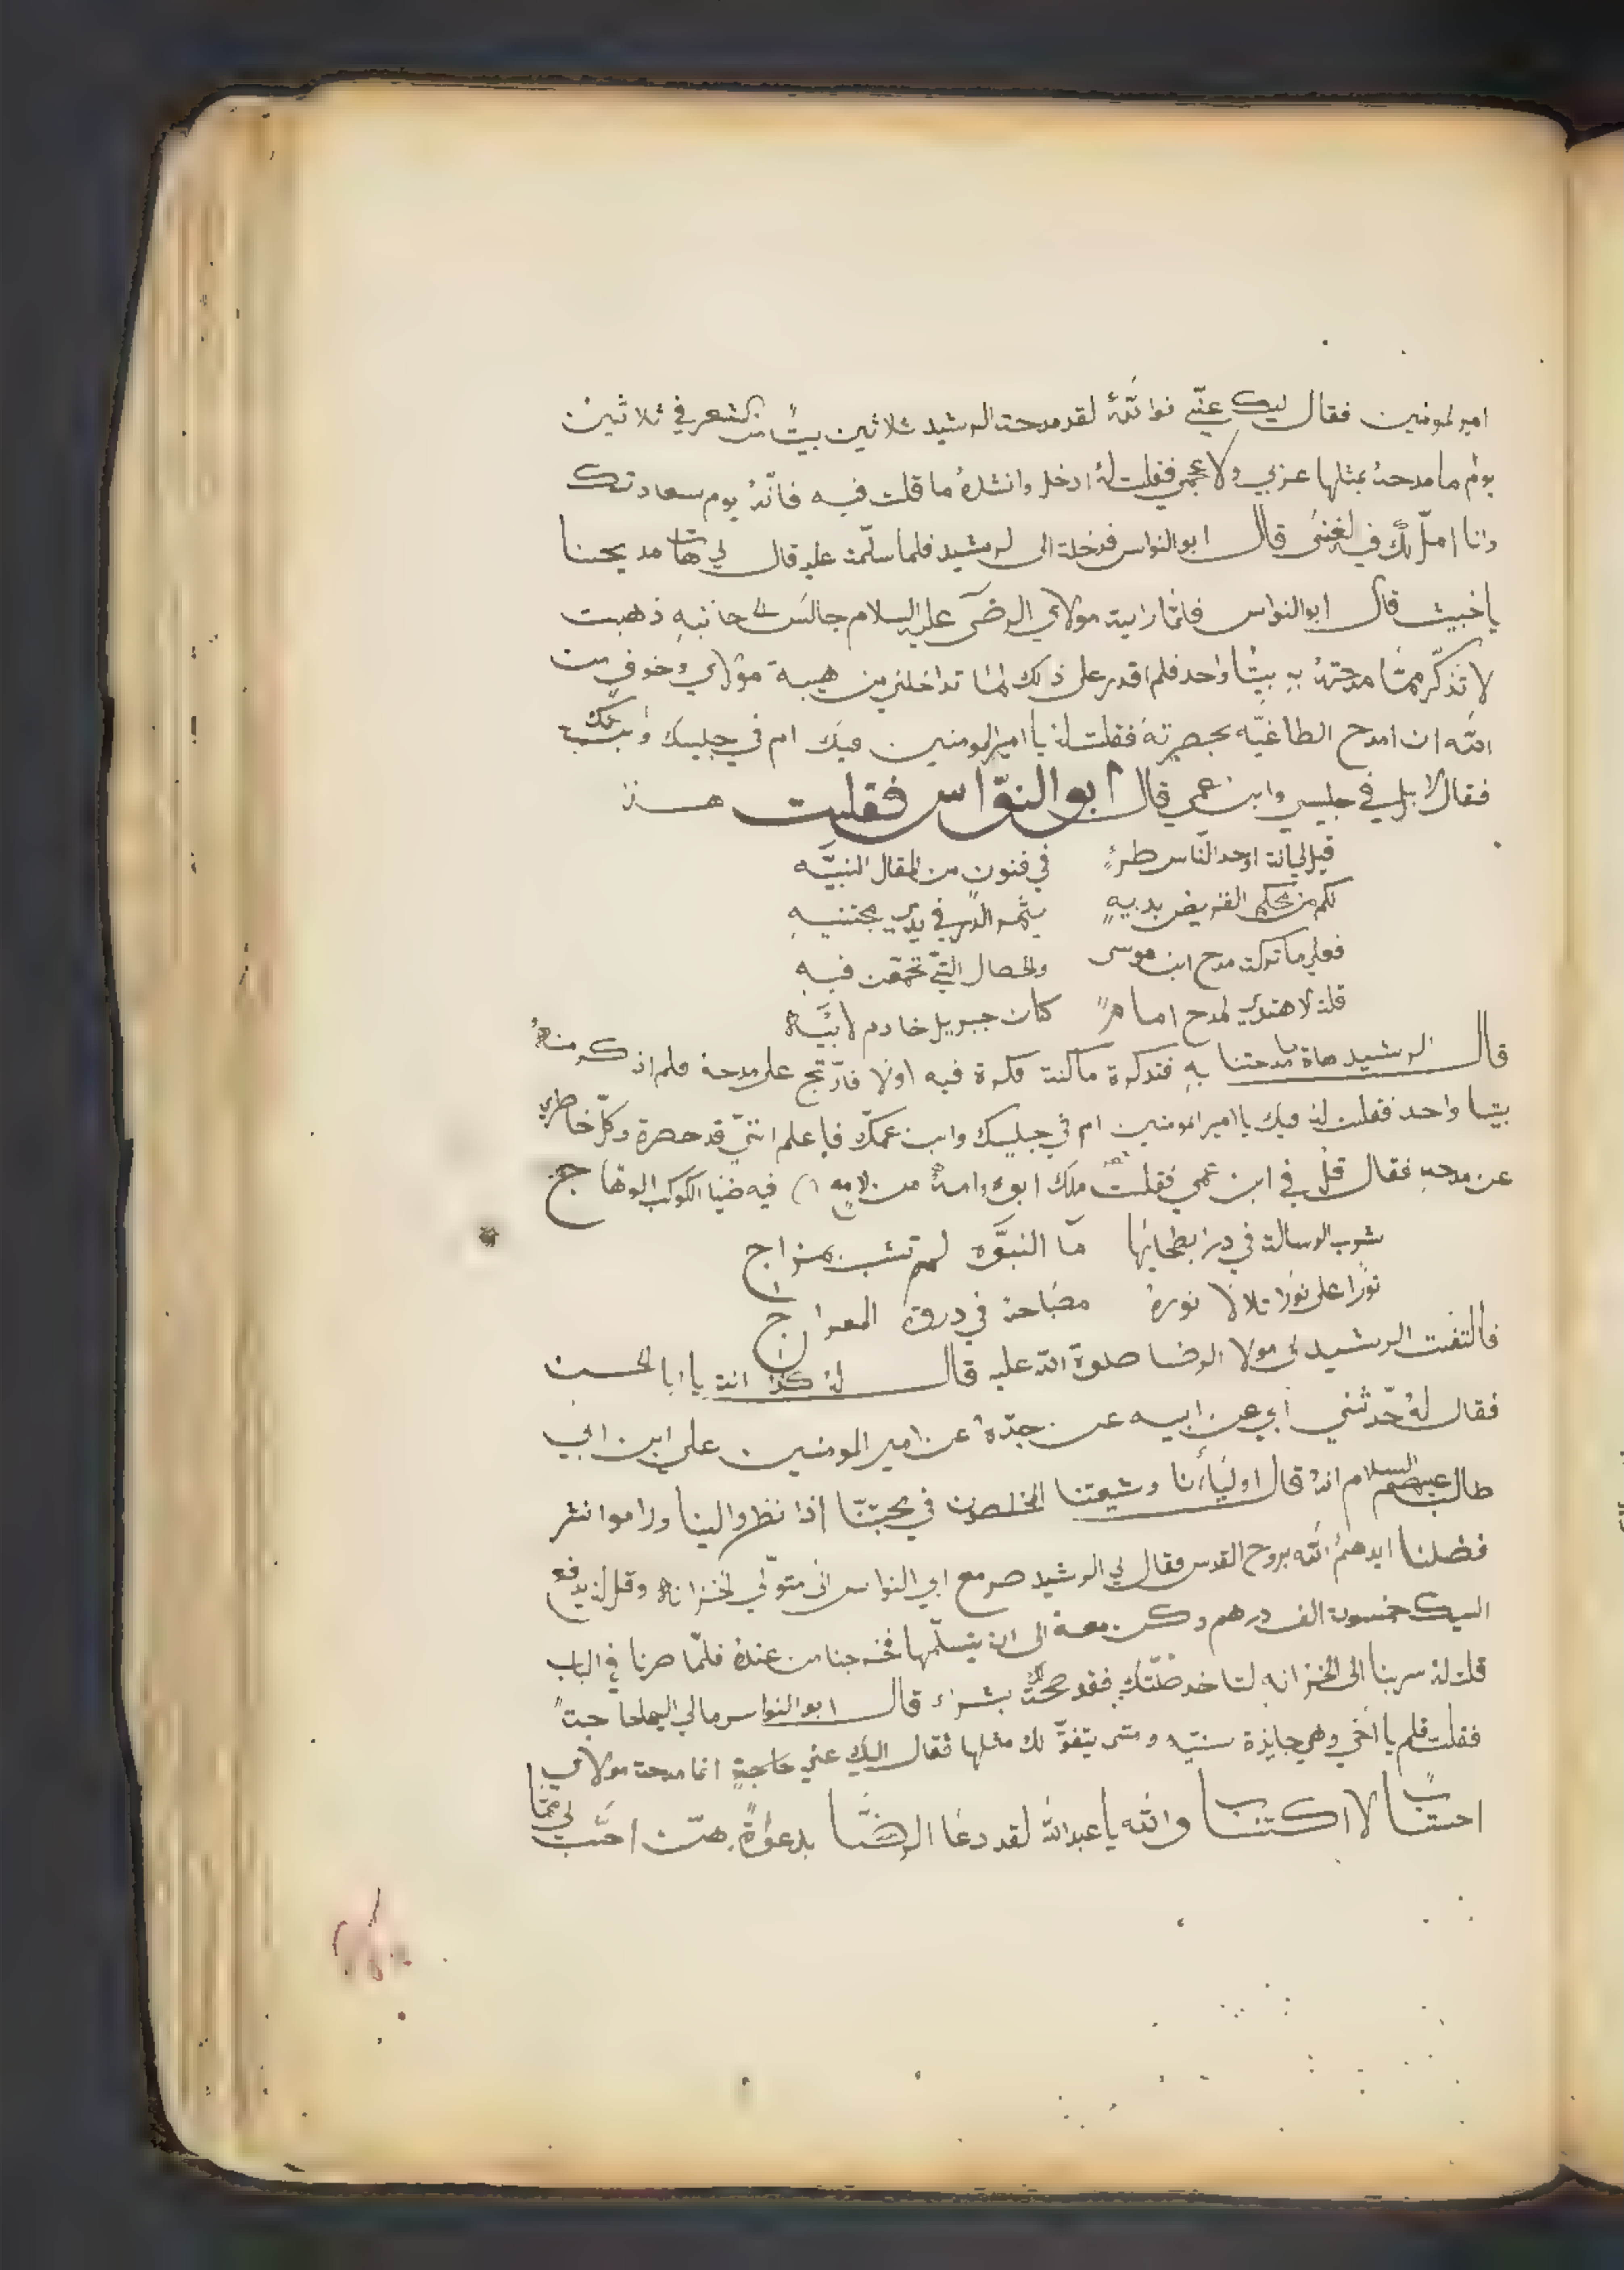 امير المومنين فقال ليك عنّي فوالله لقد مدحت الرشيد ثلاثين بيتًا من الشعر في ثلاثين
يوم ما مدحه بمثلها عربي ولا عجمي فقلت له ادخل وانشده ما قلت فيه فانّه يوم سعادتك
وانا امل لك فيه الغنى قال ابو النواس فدخلت الى الرشيد فلما سلّمت عليه قال لي هات مديحنا
يا خبيث قال ابو النواس فلمّا رايت مولاي الرضى عليه السلام جالس الى جانبه ذهبت
لا تذكّر ممّا مدحته به بيتًا واحد فلم اقدر على ذلك لما تداخلني من هيبة مولاي وخوفي من
الله ان امدح الطاغيّه بحضرته فقلت له يا امير المومنين فيك ام في جليسك وابن عمك
فقال لا بل في جليسي وابن عمي قال ابو النوّاس فقلت هذه
قيل لي انت اوحد النّاس طرءٍ في فنون من المقال النبيّه
لكم من محكم القريض بديهٍ يثمر الدر في يدي مجتنيهِ
فعلى ما تركت مدح ابن موسى والخصال التي تجمّعن فيهِ
قلت لا اهتدي لمدح امامٍ كان جبريل خادم لابيّه
قال الرشيد هاة ما مدحتنا به فتذكرة ما كنت فكرة فيه اولا فارتج على مدحه فلم اذكر منه
بيتا واحد فقلت له فيك يا امير المومنين ام في جليسك وابن عمك فاعلم انني قد حصرة وكلّ خاطري
عن مدحه فقال قل في ابن عمي فقلت ملك ابوه وامه من فيه ضيا الكوكب الوهاج
شرب الرسالة في در بطحائها ما النبوّه لم تشب بمزاج
نورًا على نورًا تلالا نوره مصباحه في دروة المعراج
فالتفت الرشيد الى مولا الرضا صلوة الله عليه قال له كذا انت يا ابا الحسن
فقال له حدثني ابي عن ابيه عن جدّه عن امير المومنين على ابن ابي
طالب عليهم السلام انه قال اوليأنا وشيعتنا المخلصون في محبتنا اذا نظروا الينا وراموا نشر
فضلنا ايدهم الله بروح القدس فقال لي الرشيد صر مع ابي النواس الى متولي الخزانه وقل له يدفع
اليك خمسون الف درهم وكن معه الى ان يتسلمها فخرجنا من عنده فلمّا صرنا في الباب
قلت له سر بنا الى الخزانه لتاخد فقد صحة لك بشراء قال ابو النواس مالي اليها حاجت
فقلت فلم يا اخي وهي جايزة سنيّه ومتى يتفق لك مثلها فقال اليك عني حاجةٍ انما مدحت مولاي
احتسابًا لا اكتسابًا والله يا عبد الله لقد دعا الرضا بدعوةٍ هنّ احب لي ممّا